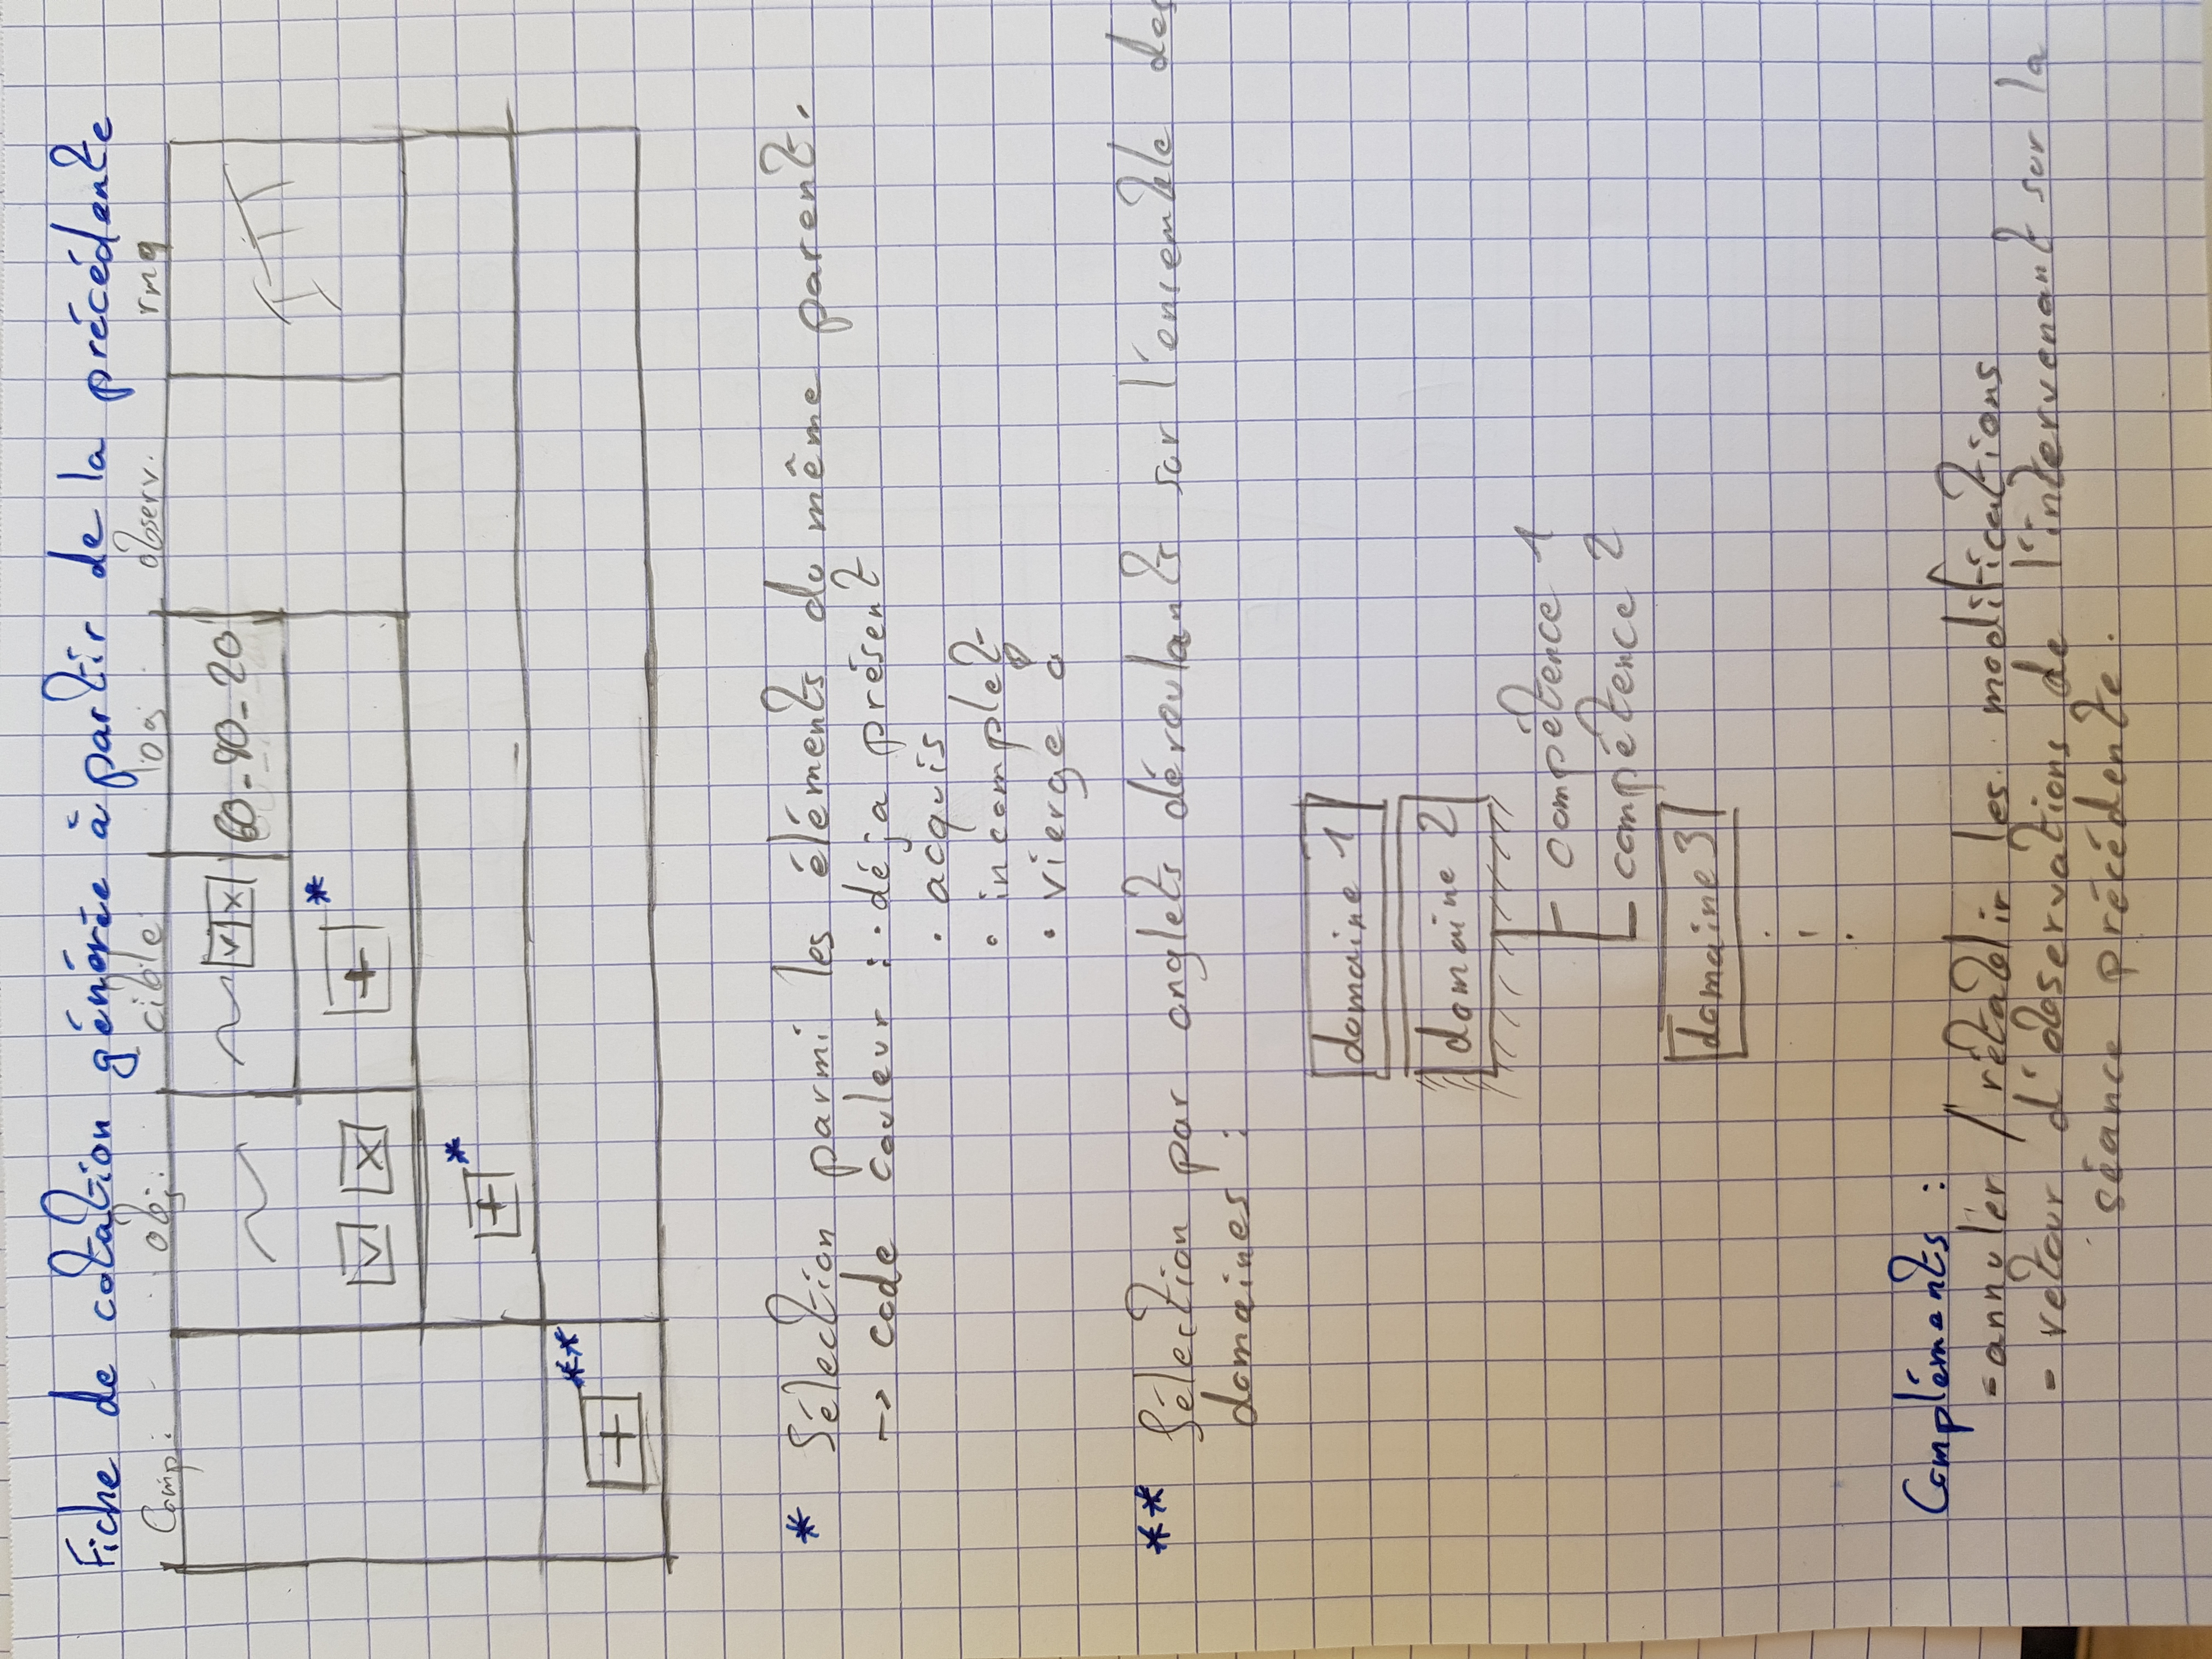 Fiche de cotation générée à partir de la précédente
Comp: obj. cible log observ. rmq
v x 60-40-20
v x + *
+ *
+ **
* Sélection parmi les éléments du même parent.
-> code couleur : · déjà présent
· acquis
· incomplet
· vierge
** Sélection par onglets déroulants sur l'ensemble des
domaines :
domaine 1
domaine 2
compétence 1
compétence 2
domaine 3
Compléments :
- annuler / rétablir les modifications
- retour d'observations de l'intervenant sur la
séance précédente.